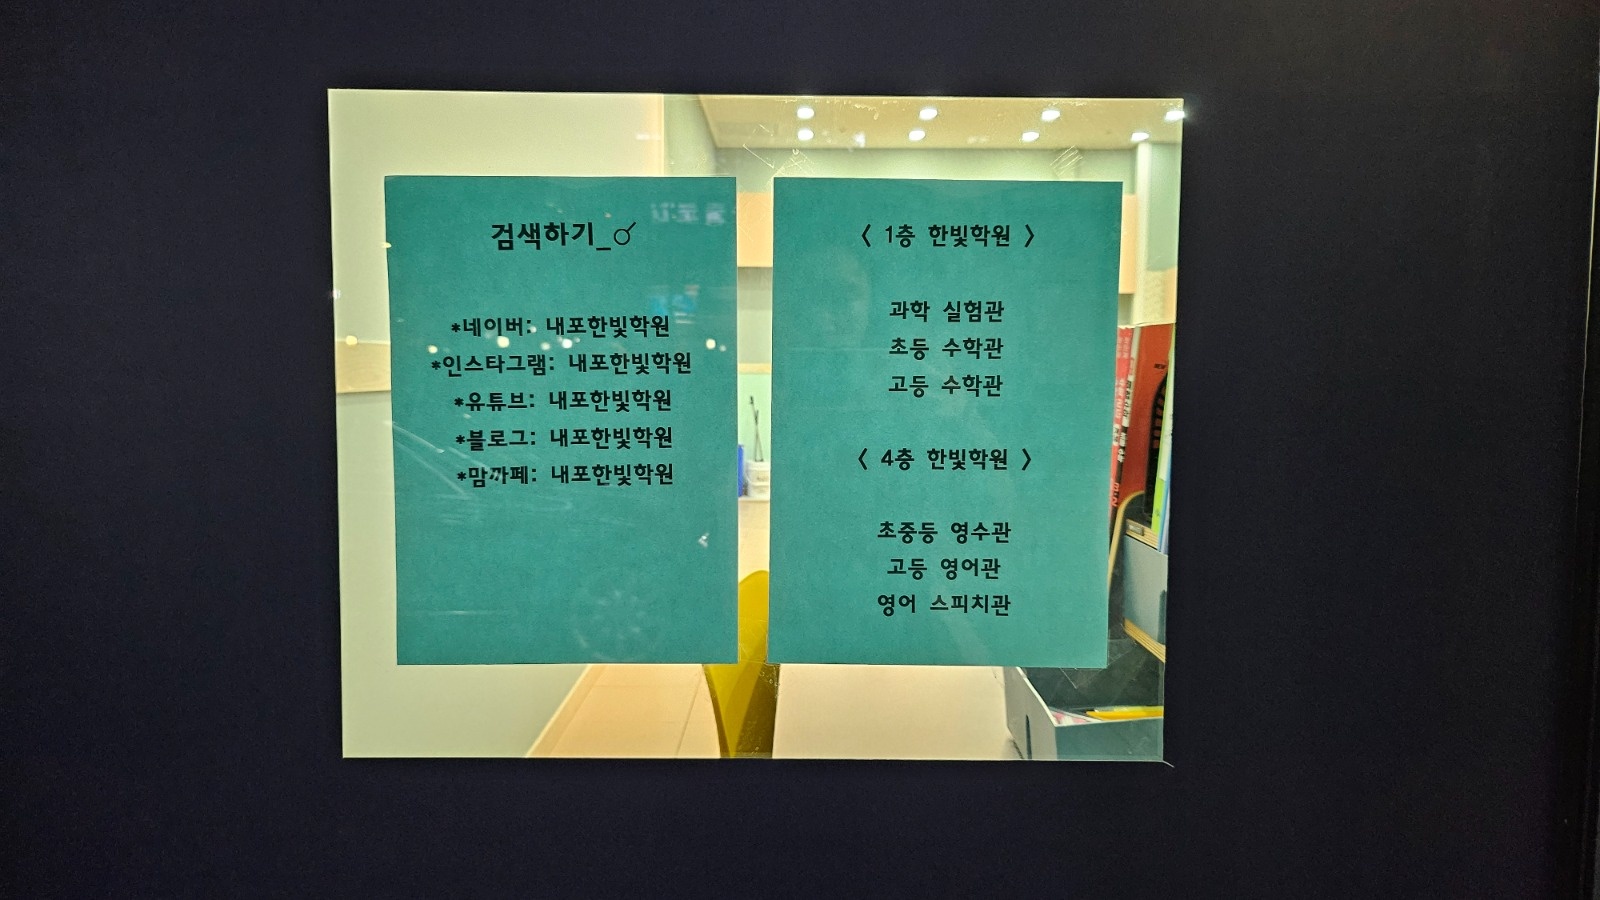 검색하기_
*네이버: 내포한빛학원
*인스타그램: 내포한빛학원
*유튜브: 내포한빛학원
*블로그: 내포한빛학원
*맘까페: 내포한빛학원
〈 1층 한빛학원 〉
과학 실험관
초등 수학관
고등 수학관
〈 4층 한빛학원 〉
초중등 영수관
고등 영어관
영어 스피치관